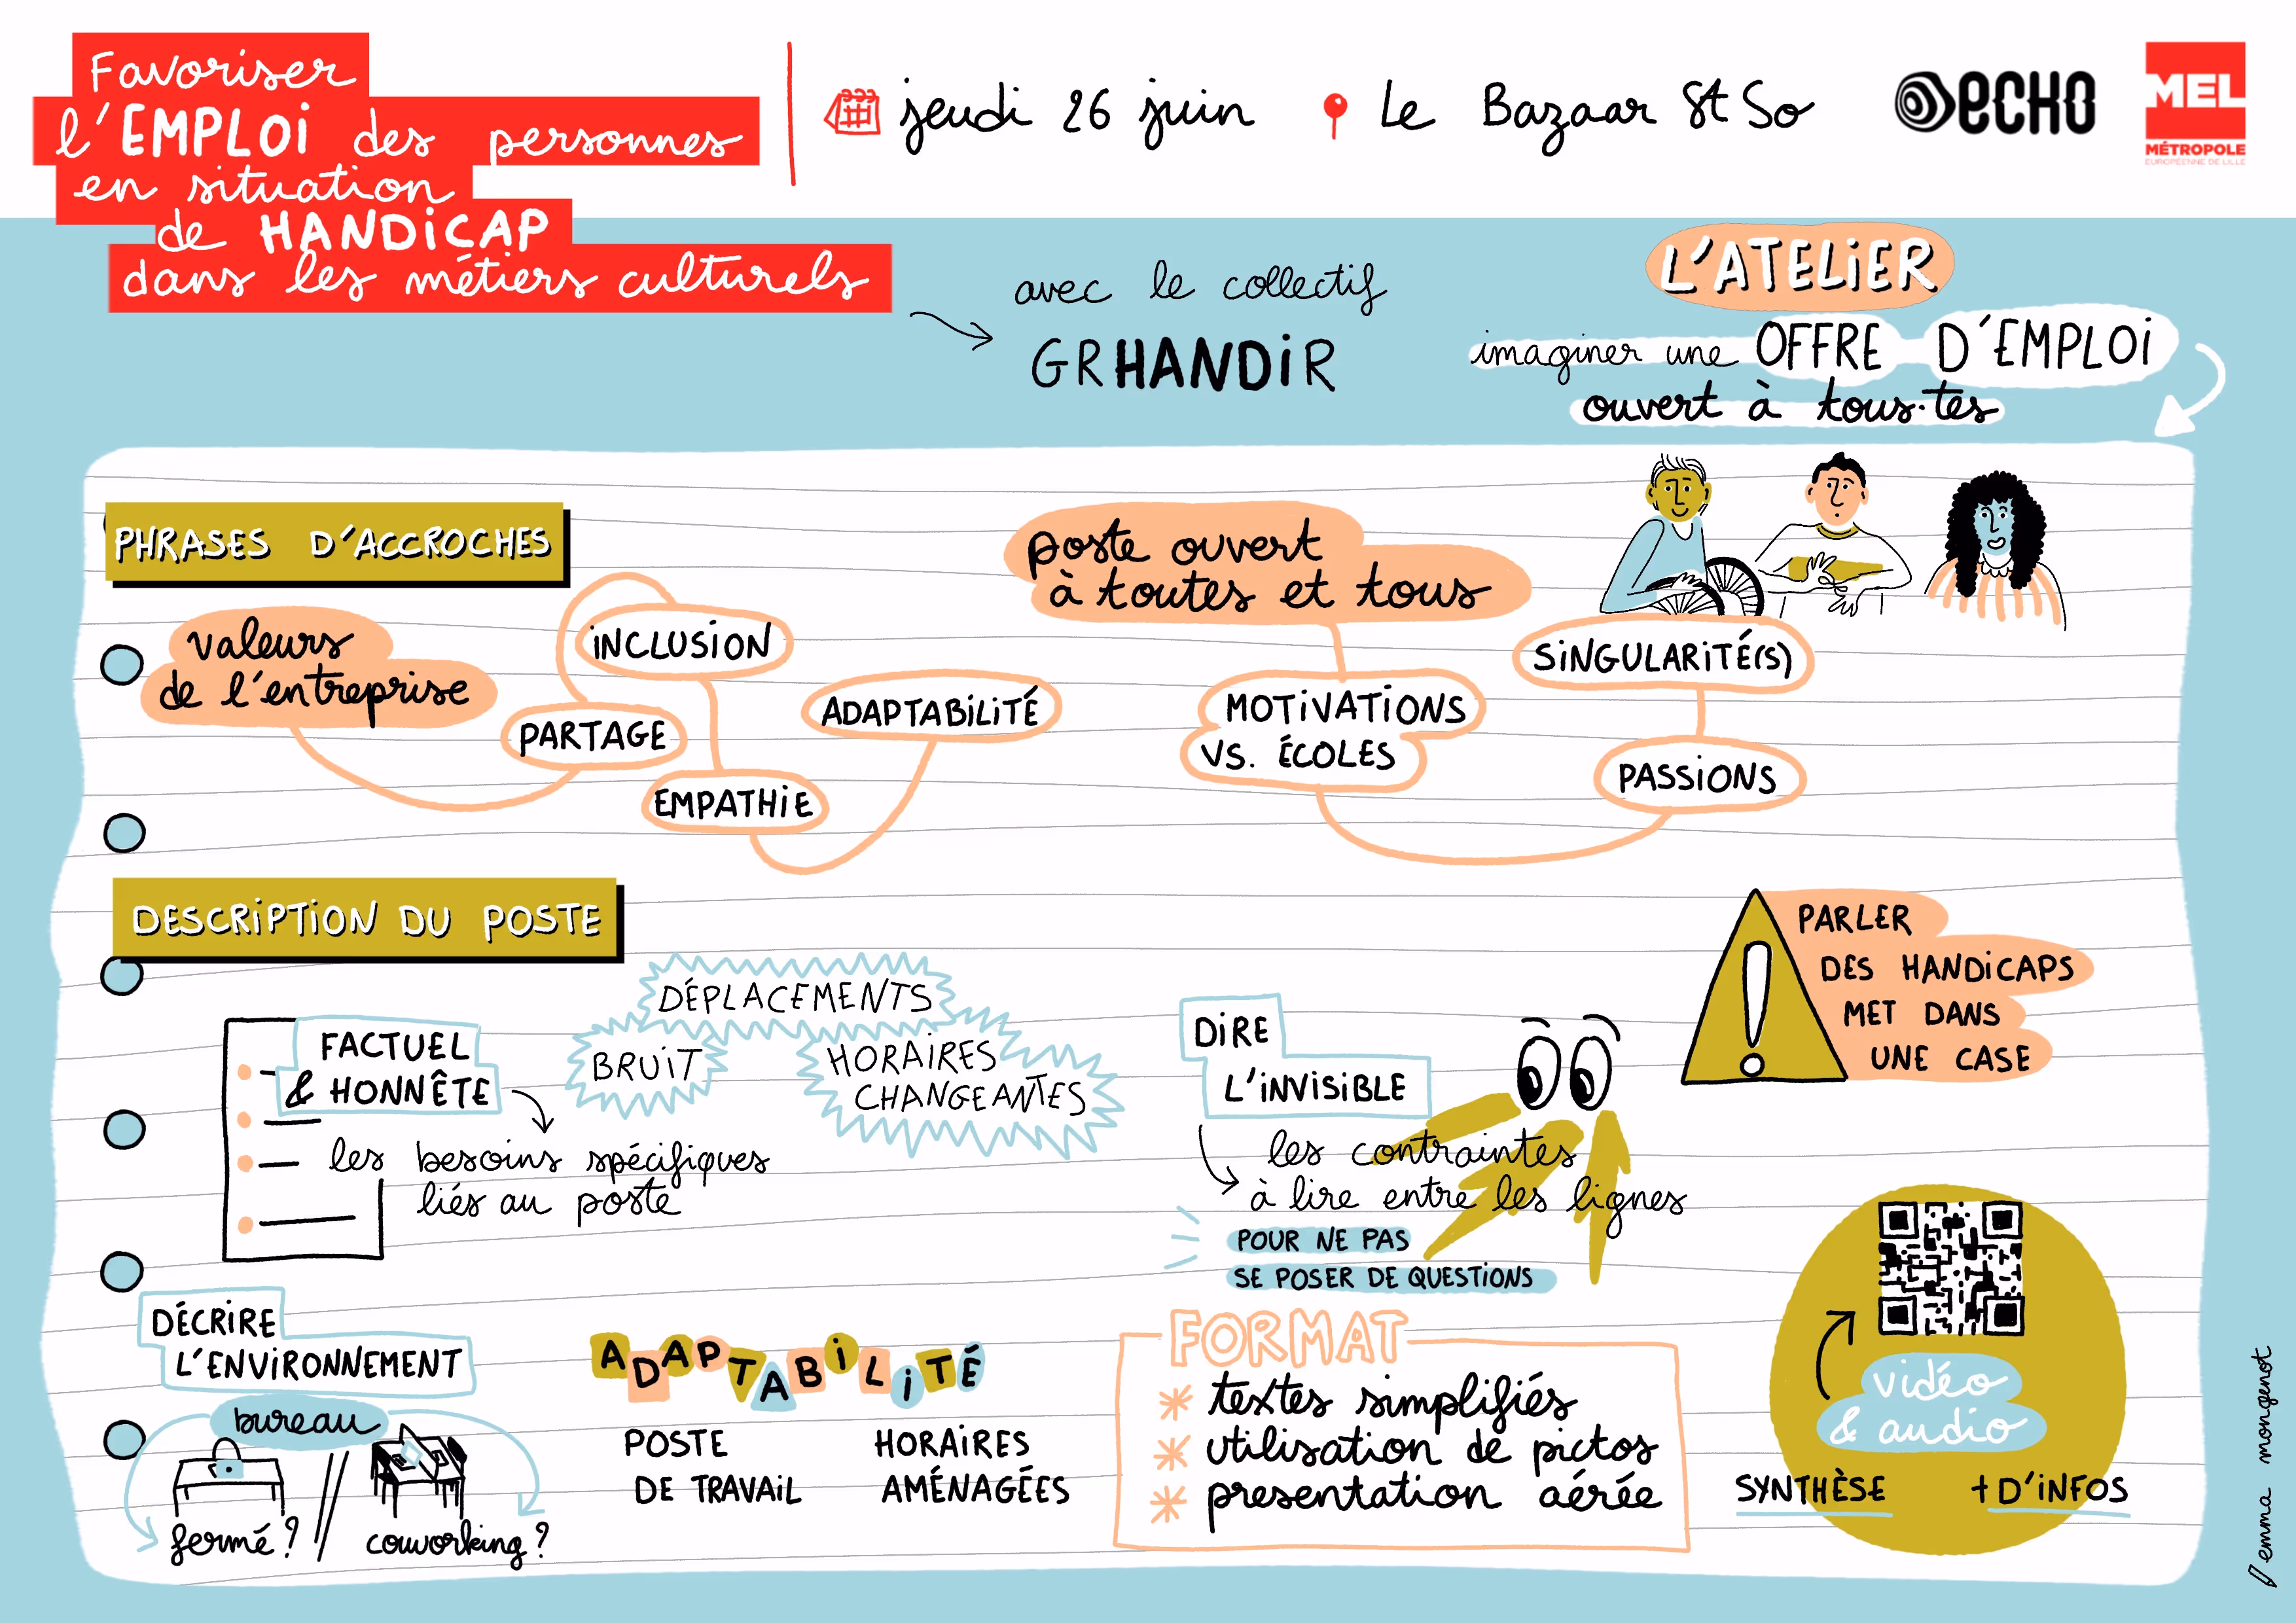 Favoriser
l'EMPLOi des personnes
en situation
de HANDiCAP
dans les métiers culturels
jeudi 26 juin
Le Bazaar St So
ECHO
MEL
MÉTROPOLE
EUROPÉENNE DE LILLE
avec le collectif
GRHANDiR
L'ATELiER
imaginer une OFFRE D'EMPLOi
ouvert à tous·tes
PHRASES D'ACCROCHES
valeurs
de l'entreprise
PARTAGE
iNCLUSION
EMPATHiE
ADAPTABiLiTÉ
poste ouvert
à toutes et tous
MOTiVATiONS
VS. ÉCOLES
PASSiONS
SiNGULARiTÉ(S)
DESCRiPTiON DU POSTE
FACTUEL
& HONNÊTE
les besoins spécifiques
liés au poste
DÉPLACEMENTS
BRUiT
HORAiRES
CHANGEANTES
DiRE
L'iNViSiBLE
les contraintes
à lire entre les lignes
POUR NE PAS
SE POSER DE QUESTiONS
PARLER
DES HANDiCAPS
MET DANS
UNE CASE
DÉCRiRE
L'ENViRONNEMENT
bureau
fermé ?
coworking ?
ADAPTABiLiTÉ
POSTE
DE TRAVAiL
HORAiRES
AMÉNAGÉES
FORMAT
textes simplifiés
utilisation de pictos
presentation aérée
vidéo
& audio
SYNTHÈSE
+ D'iNFOS
emma mongenot